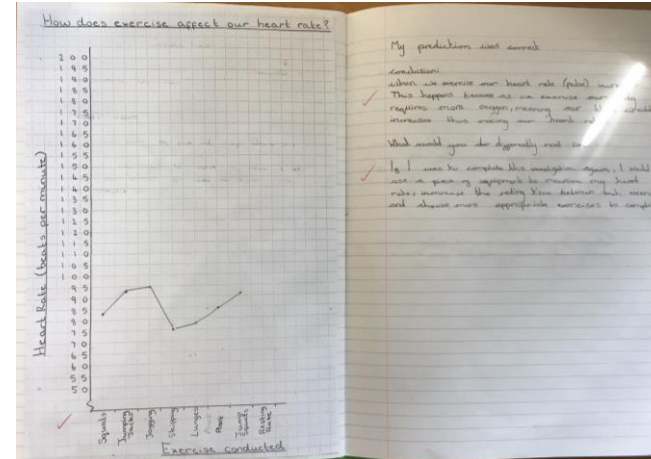 How does exercise affect our heart rate?
Heart Rate (beats per minute)
200
195
190
185
180
175
170
165
160
155
150
145
140
135
130
125
120
115
110
105
100
95
90
85
80
75
70
65
60
55
50
Squats
Jumping Jacks
Jogging
Skipping
Lunges
Plank
Jump Squats
Resting Rate
Exercise conducted
My prediction was correct
conclusion:
when we exercise our heart rate (pulse)
This happens because as we exercise our
requires more oxygen, meaning our
increases thus making our heart
What would you do differently next
If I was to complete this investigation again, I would
use a piece of equipment to measure my heart
rate, increase the resting time between each
and choose more appropriate exercises to